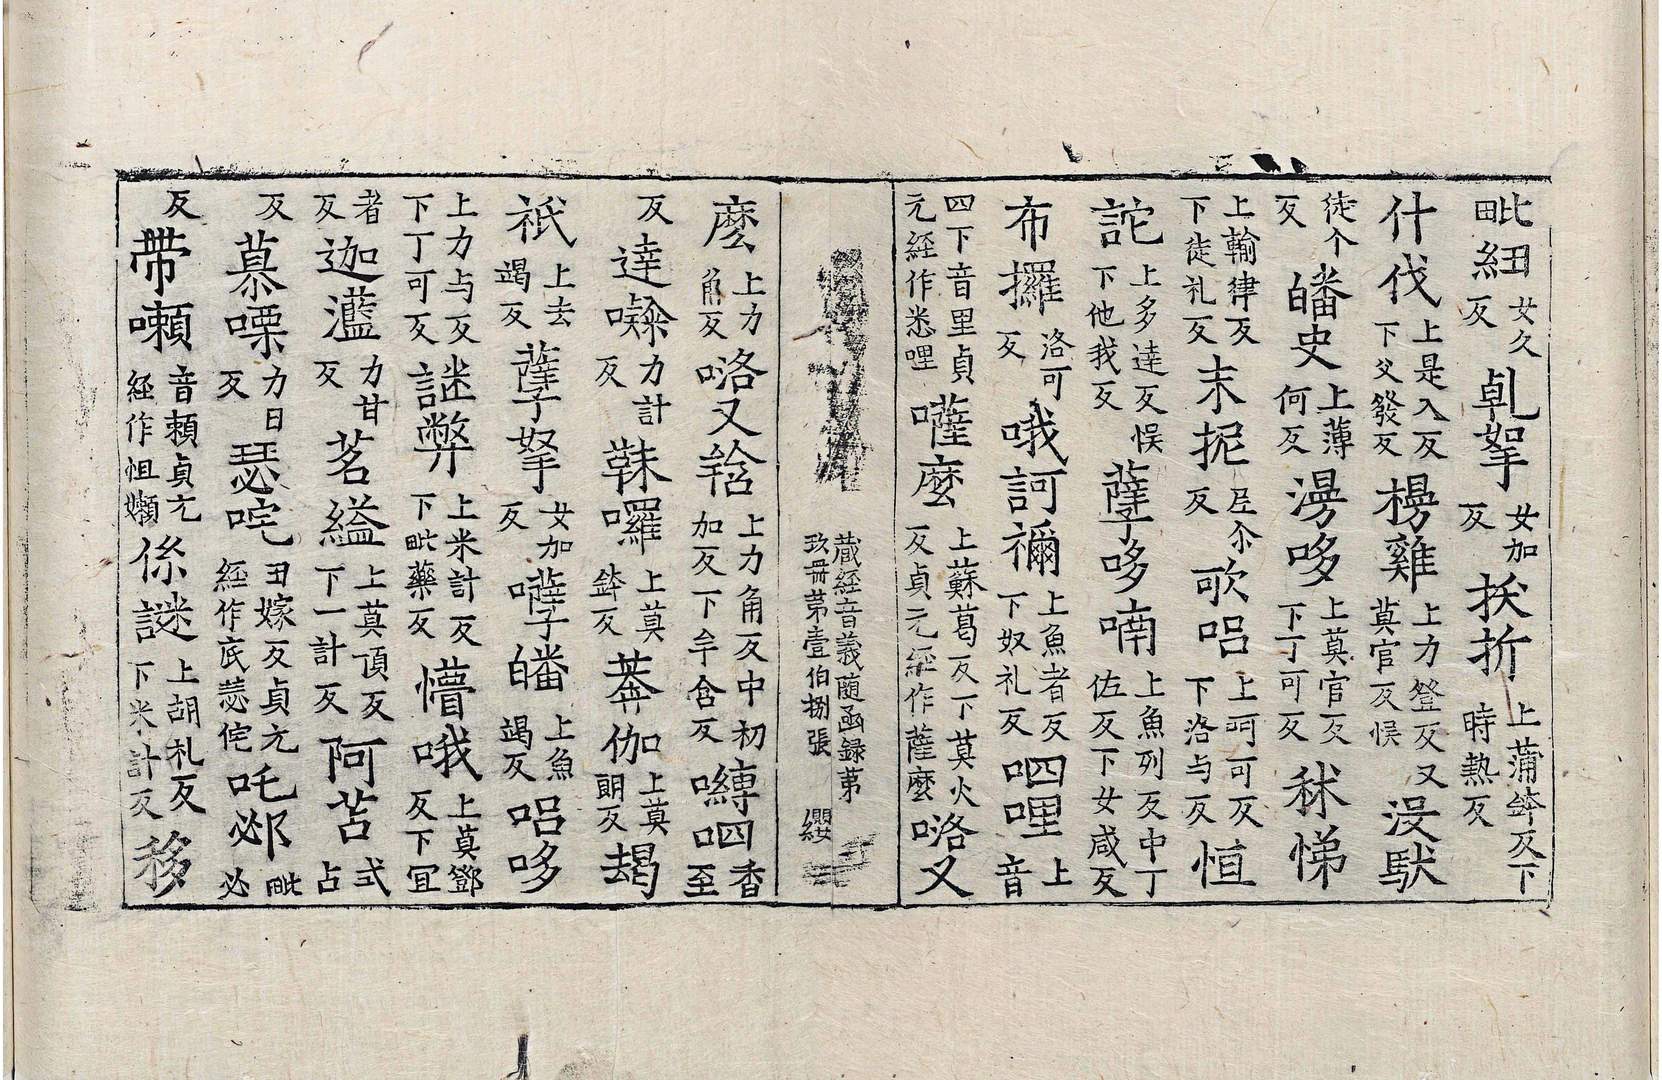 毗紐女久反乹拏女加反挻折上蒲鉢反下時熱反
什伐上是入反下父發反楞雞上力登反又莫官反悮沒馱
徒个反皤史上薄何反漫哆上莫官反下丁可反秣悌
上輸律反下徒礼反末抳尼尒反㰤呂上呵可反下洛与反恒
詑上多達反悮下他我反薩哆喃上魚列反中丁佐反下女咸反
布攞洛可反哦訶禰上魚者反下奴礼反呬哩上音
四下音里貞元經作悉哩囉麼上蘇葛反下莫火反貞元經作薩麼咯又
藏經音義隨函錄第玖冊第壹伯捌張 纓
麼上力角反咯叉䈄上力角反中初加反下牟含反嚩呬香至
反達㘑力計反靺囉上莫鉢反莾伽上莫朗反朅
祇上去謁反孽拏女加反㘖皤上魚謁反呂哆
上力与反下丁可反謎弊上米計反下毗藥反懵哦上莫鄧反下冝
者反迦灆力甘反茗縊上莫頂反下一計反阿苫式占
反慕㗚力日反瑟咤丑嫁反貞元經作底瑟侘吒邲毗必
反帶嚬音賴貞元經作怛嬾係謎上胡札反下米計反移